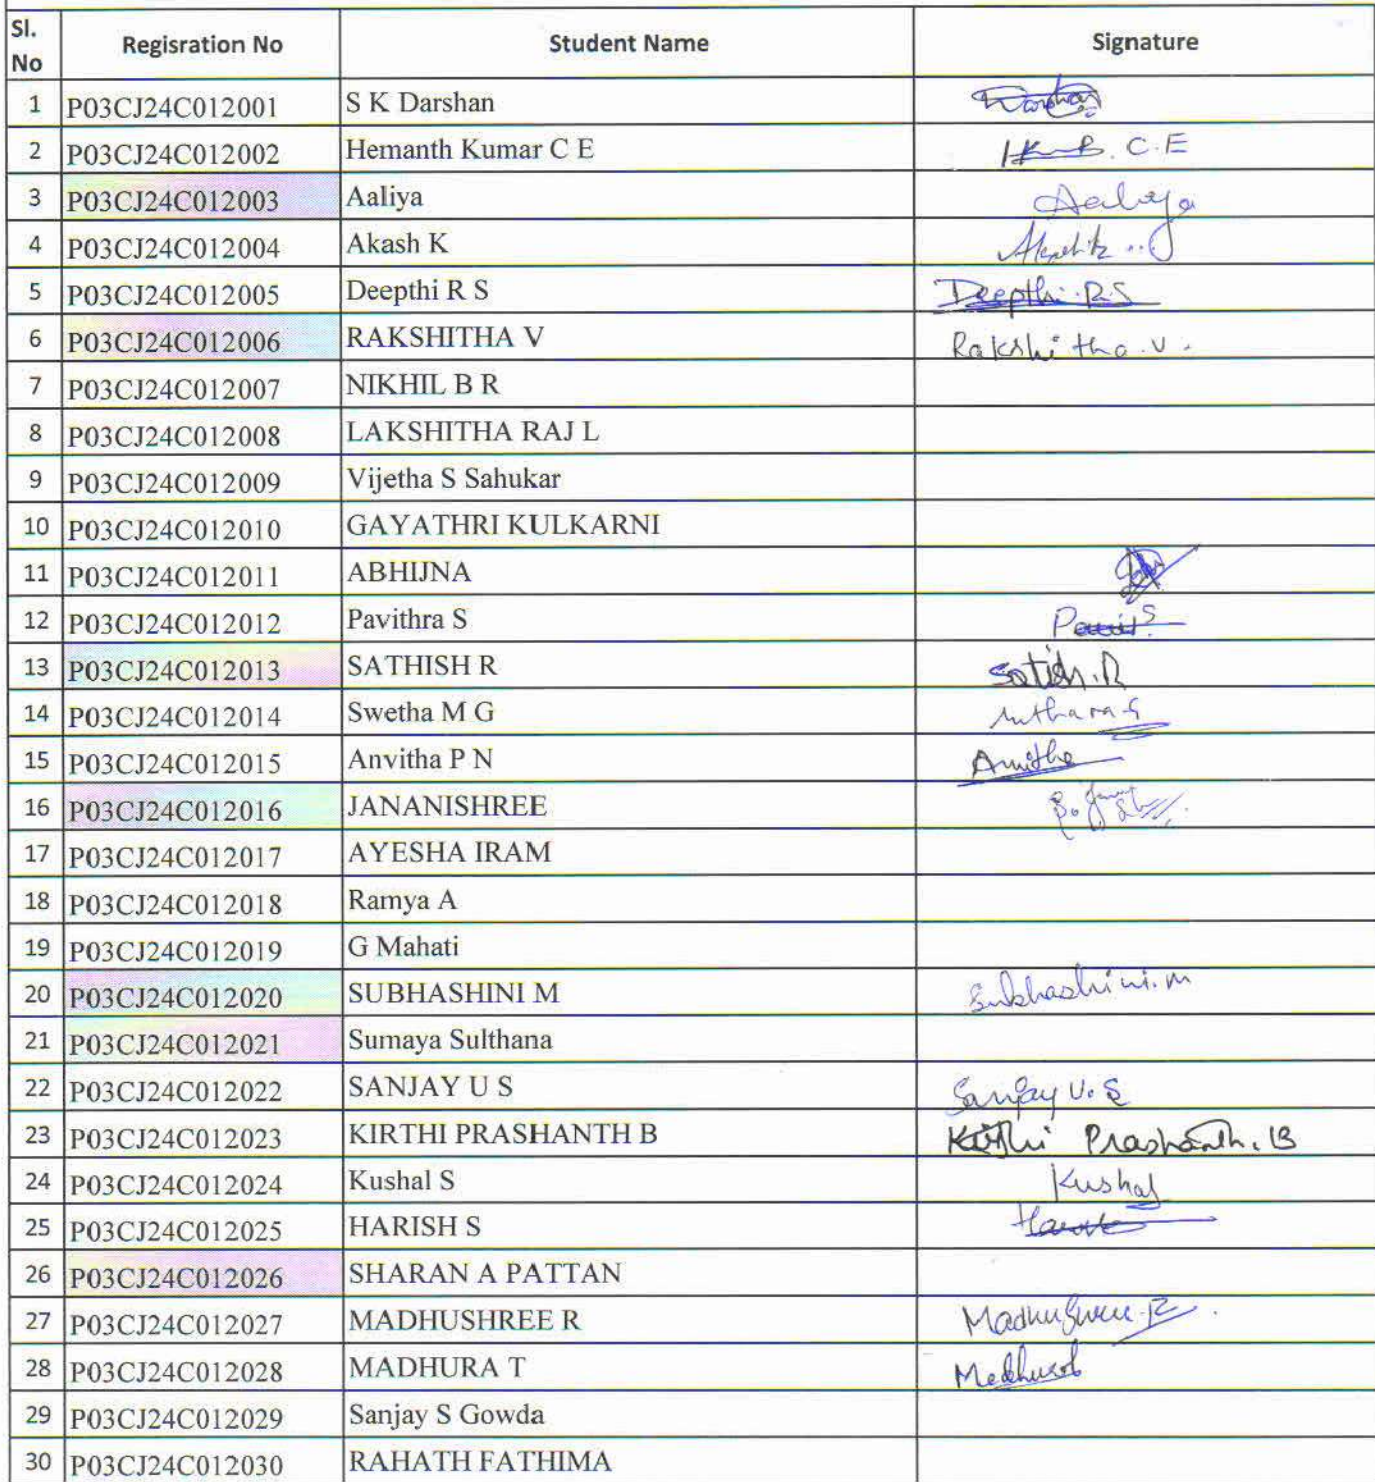 Sl. No Regisration No Student Name Signature
1 P03CJ24C012001 S K Darshan Darshan
2 P03CJ24C012002 Hemanth Kumar C E C.E
3 P03CJ24C012003 Aaliya Aaliya
4 P03CJ24C012004 Akash K
5 P03CJ24C012005 Deepthi R S Deepthi.R.S
6 P03CJ24C012006 RAKSHITHA V Rakshitha.V.
7 P03CJ24C012007 NIKHIL B R
8 P03CJ24C012008 LAKSHITHA RAJ L
9 P03CJ24C012009 Vijetha S Sahukar
10 P03CJ24C012010 GAYATHRI KULKARNI
11 P03CJ24C012011 ABHIJNA
12 P03CJ24C012012 Pavithra S
13 P03CJ24C012013 SATHISH R Satish.R
14 P03CJ24C012014 Swetha M G
15 P03CJ24C012015 Anvitha P N Anvitha
16 P03CJ24C012016 JANANISHREE
17 P03CJ24C012017 AYESHA IRAM
18 P03CJ24C012018 Ramya A
19 P03CJ24C012019 G Mahati
20 P03CJ24C012020 SUBHASHINI M Subhashini.M
21 P03CJ24C012021 Sumaya Sulthana
22 P03CJ24C012022 SANJAY U S Sanjay U.S
23 P03CJ24C012023 KIRTHI PRASHANTH B Kirthi Prashanth.B
24 P03CJ24C012024 Kushal S Kushal
25 P03CJ24C012025 HARISH S
26 P03CJ24C012026 SHARAN A PATTAN
27 P03CJ24C012027 MADHUSHREE R Madhushree.R
28 P03CJ24C012028 MADHURA T Madhura
29 P03CJ24C012029 Sanjay S Gowda
30 P03CJ24C012030 RAHATH FATHIMA